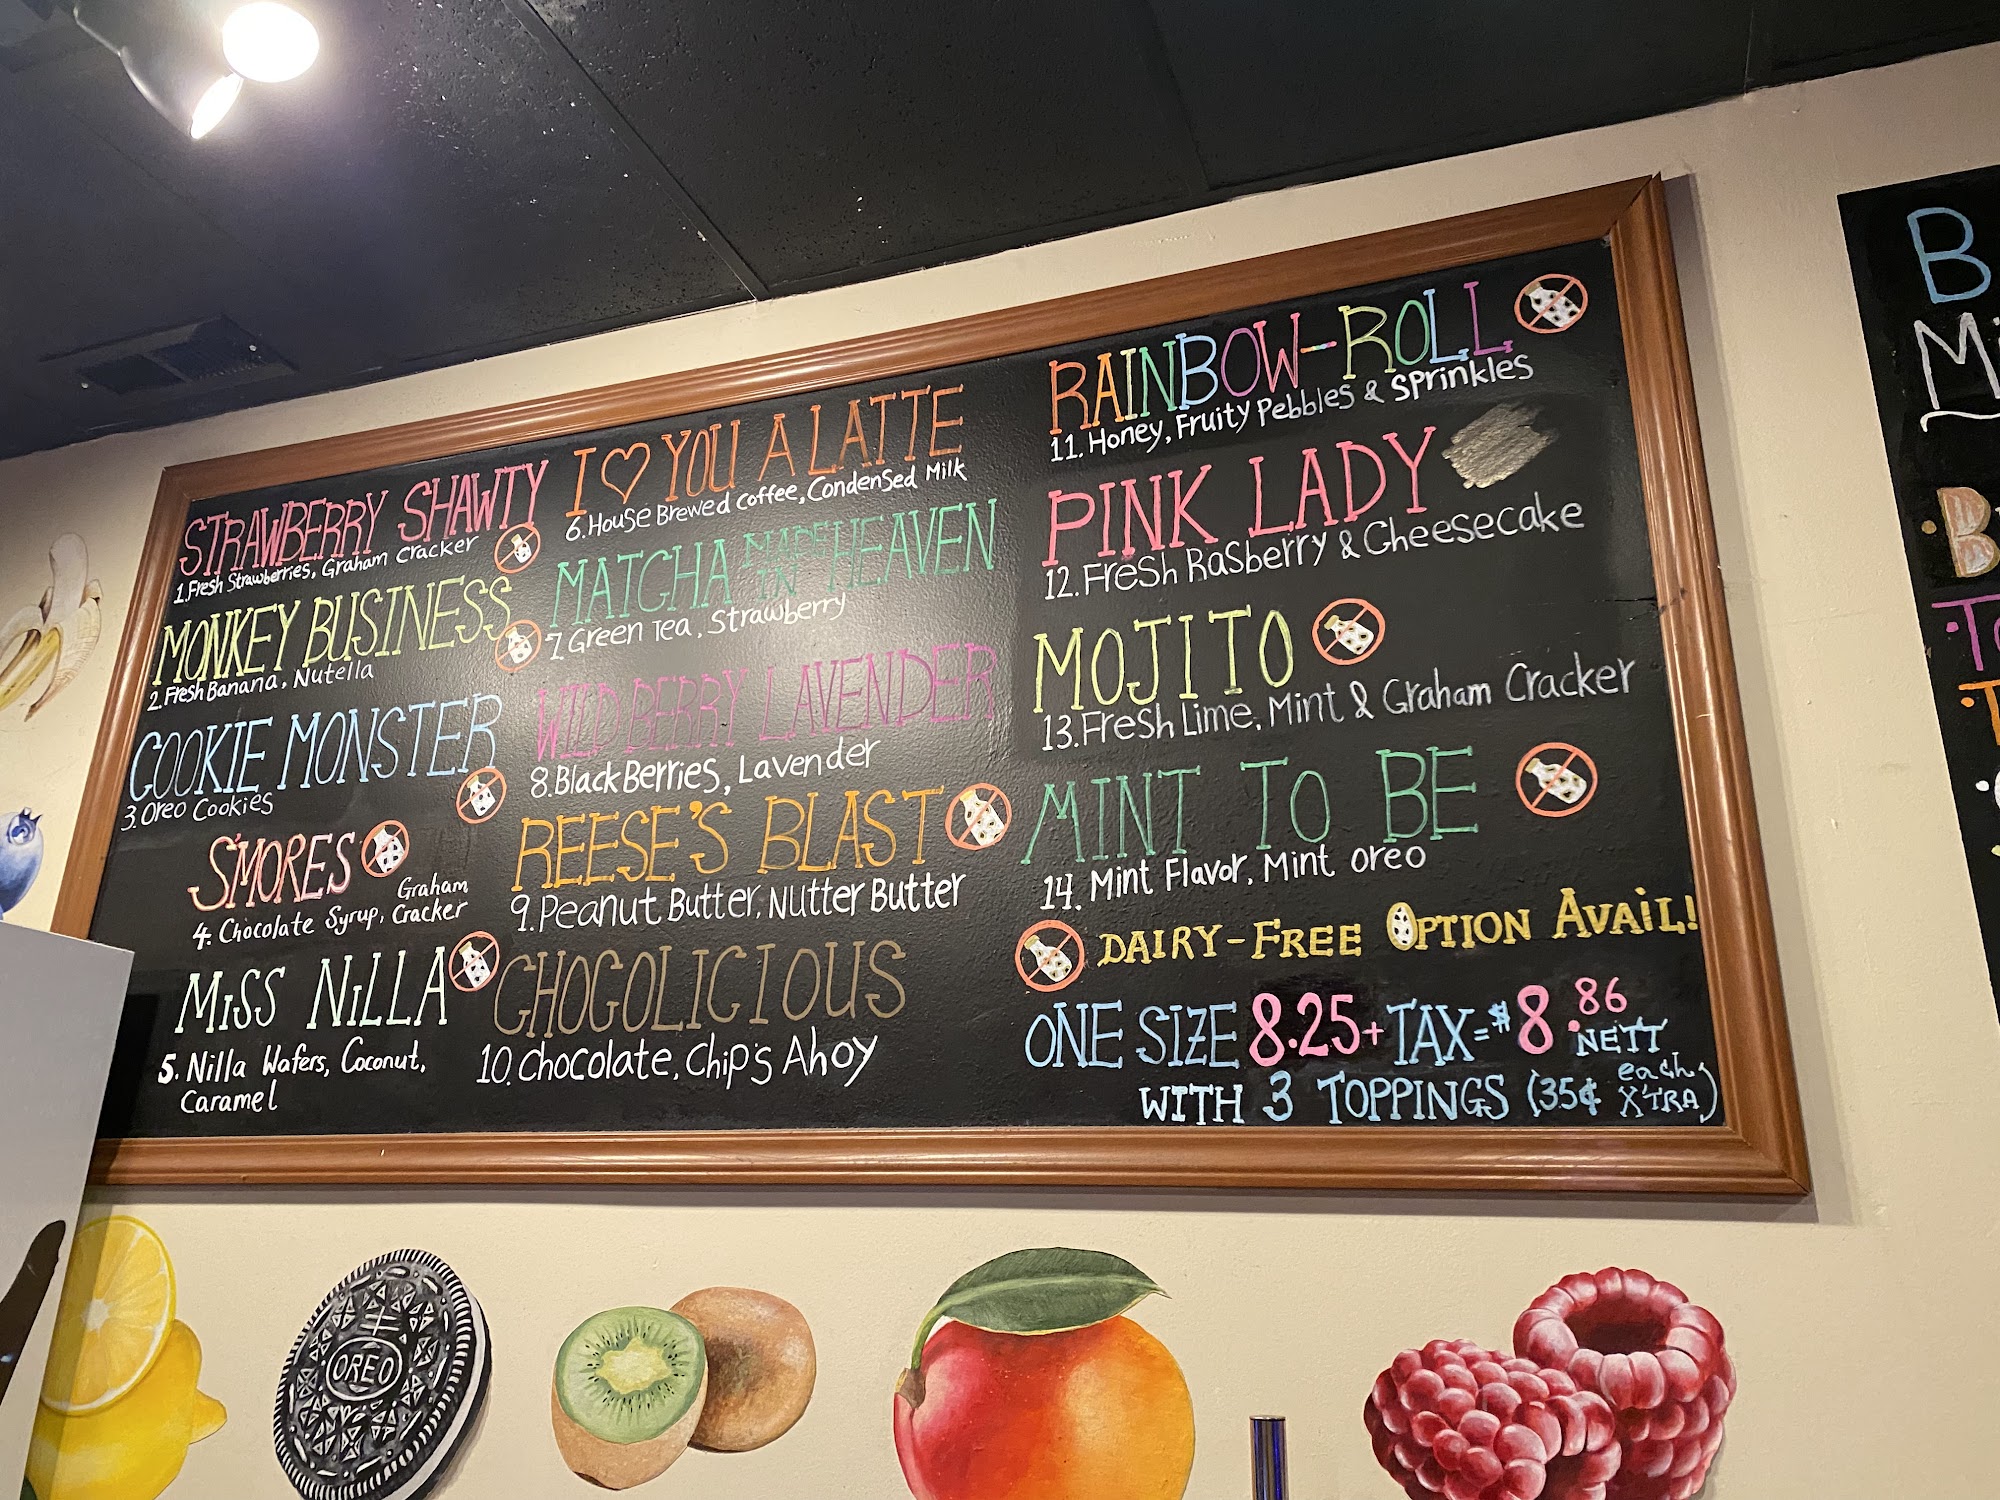 STRAWBERRY SHAWTY
1. Fresh Strawberries, Graham Cracker
MONKEY BUSINESS
2. Fresh Banana, Nutella
COOKIE MONSTER
3. Oreo Cookies
S'MORES
4. Chocolate Syrup, Graham Cracker
MiSS NiLLA
5. Nilla Wafers, Coconut,
Caramel
I ♡ YOU A LATTE
6. House Brewed Coffee, Condensed Milk
MATCHA MADE IN HEAVEN
7. Green Tea, Strawberry
WILD BERRY LAVENDER
8. BlackBerries, Lavender
REESE'S BLAST
9. Peanut Butter, Nutter Butter
CHOCOLICIOUS
10. Chocolate, Chip's Ahoy
RAINBOW-ROLL
11. Honey, Fruity Pebbles & Sprinkles
PINK LADY
12. Fresh Rasberry & Cheesecake
MOJITO
13. Fresh Lime, Mint & Graham Cracker
MINT TO BE
14. Mint Flavor, Mint oreo
DAIRY-FREE OPTION AVAIL!
ONE SIZE 8.25 + TAX = $8.86 NETT
WITH 3 TOPPINGS (35¢ each X'TRA)
OREO